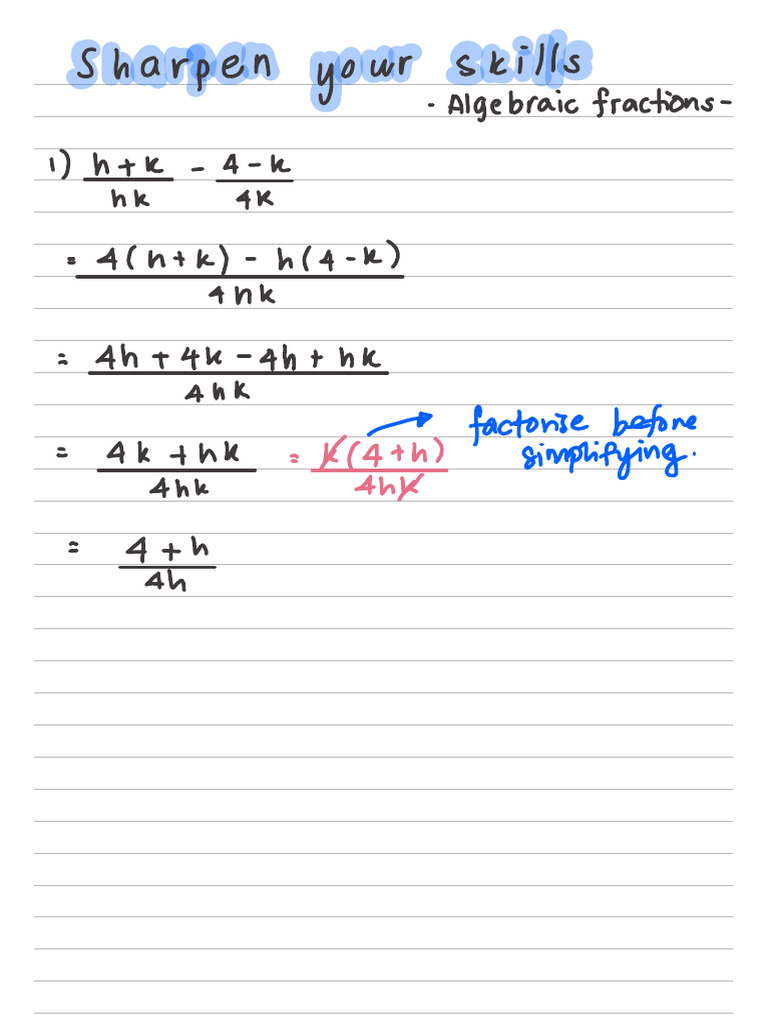 Sharpen your skills
- Algebraic fractions -
1) h + k / hk - 4 - k / 4k
= 4(h + k) - h(4 - k) / 4hk
= 4h + 4k - 4h + hk / 4hk
= 4k + hk / 4hk = k(4 + h) / 4hk → factorise before simplifying.
= 4 + h / 4h